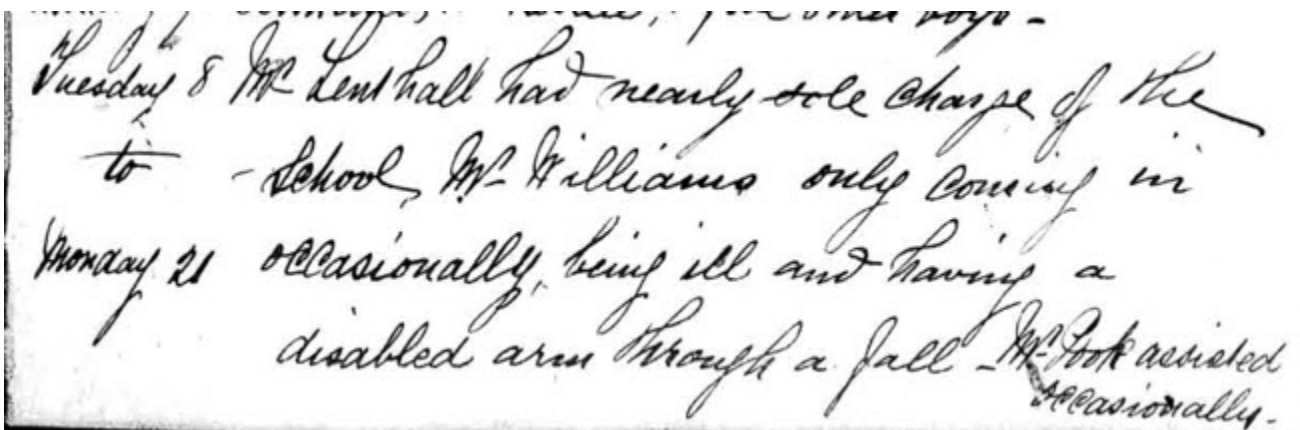 other boys -
Tuesday 8 Mr Lenthall had nearly sole charge of the
to - School, Mr Williams only coming in
Monday 21 occasionally, being ill and having a
disabled arm through a fall - Mr Pook assisted
occasionally -